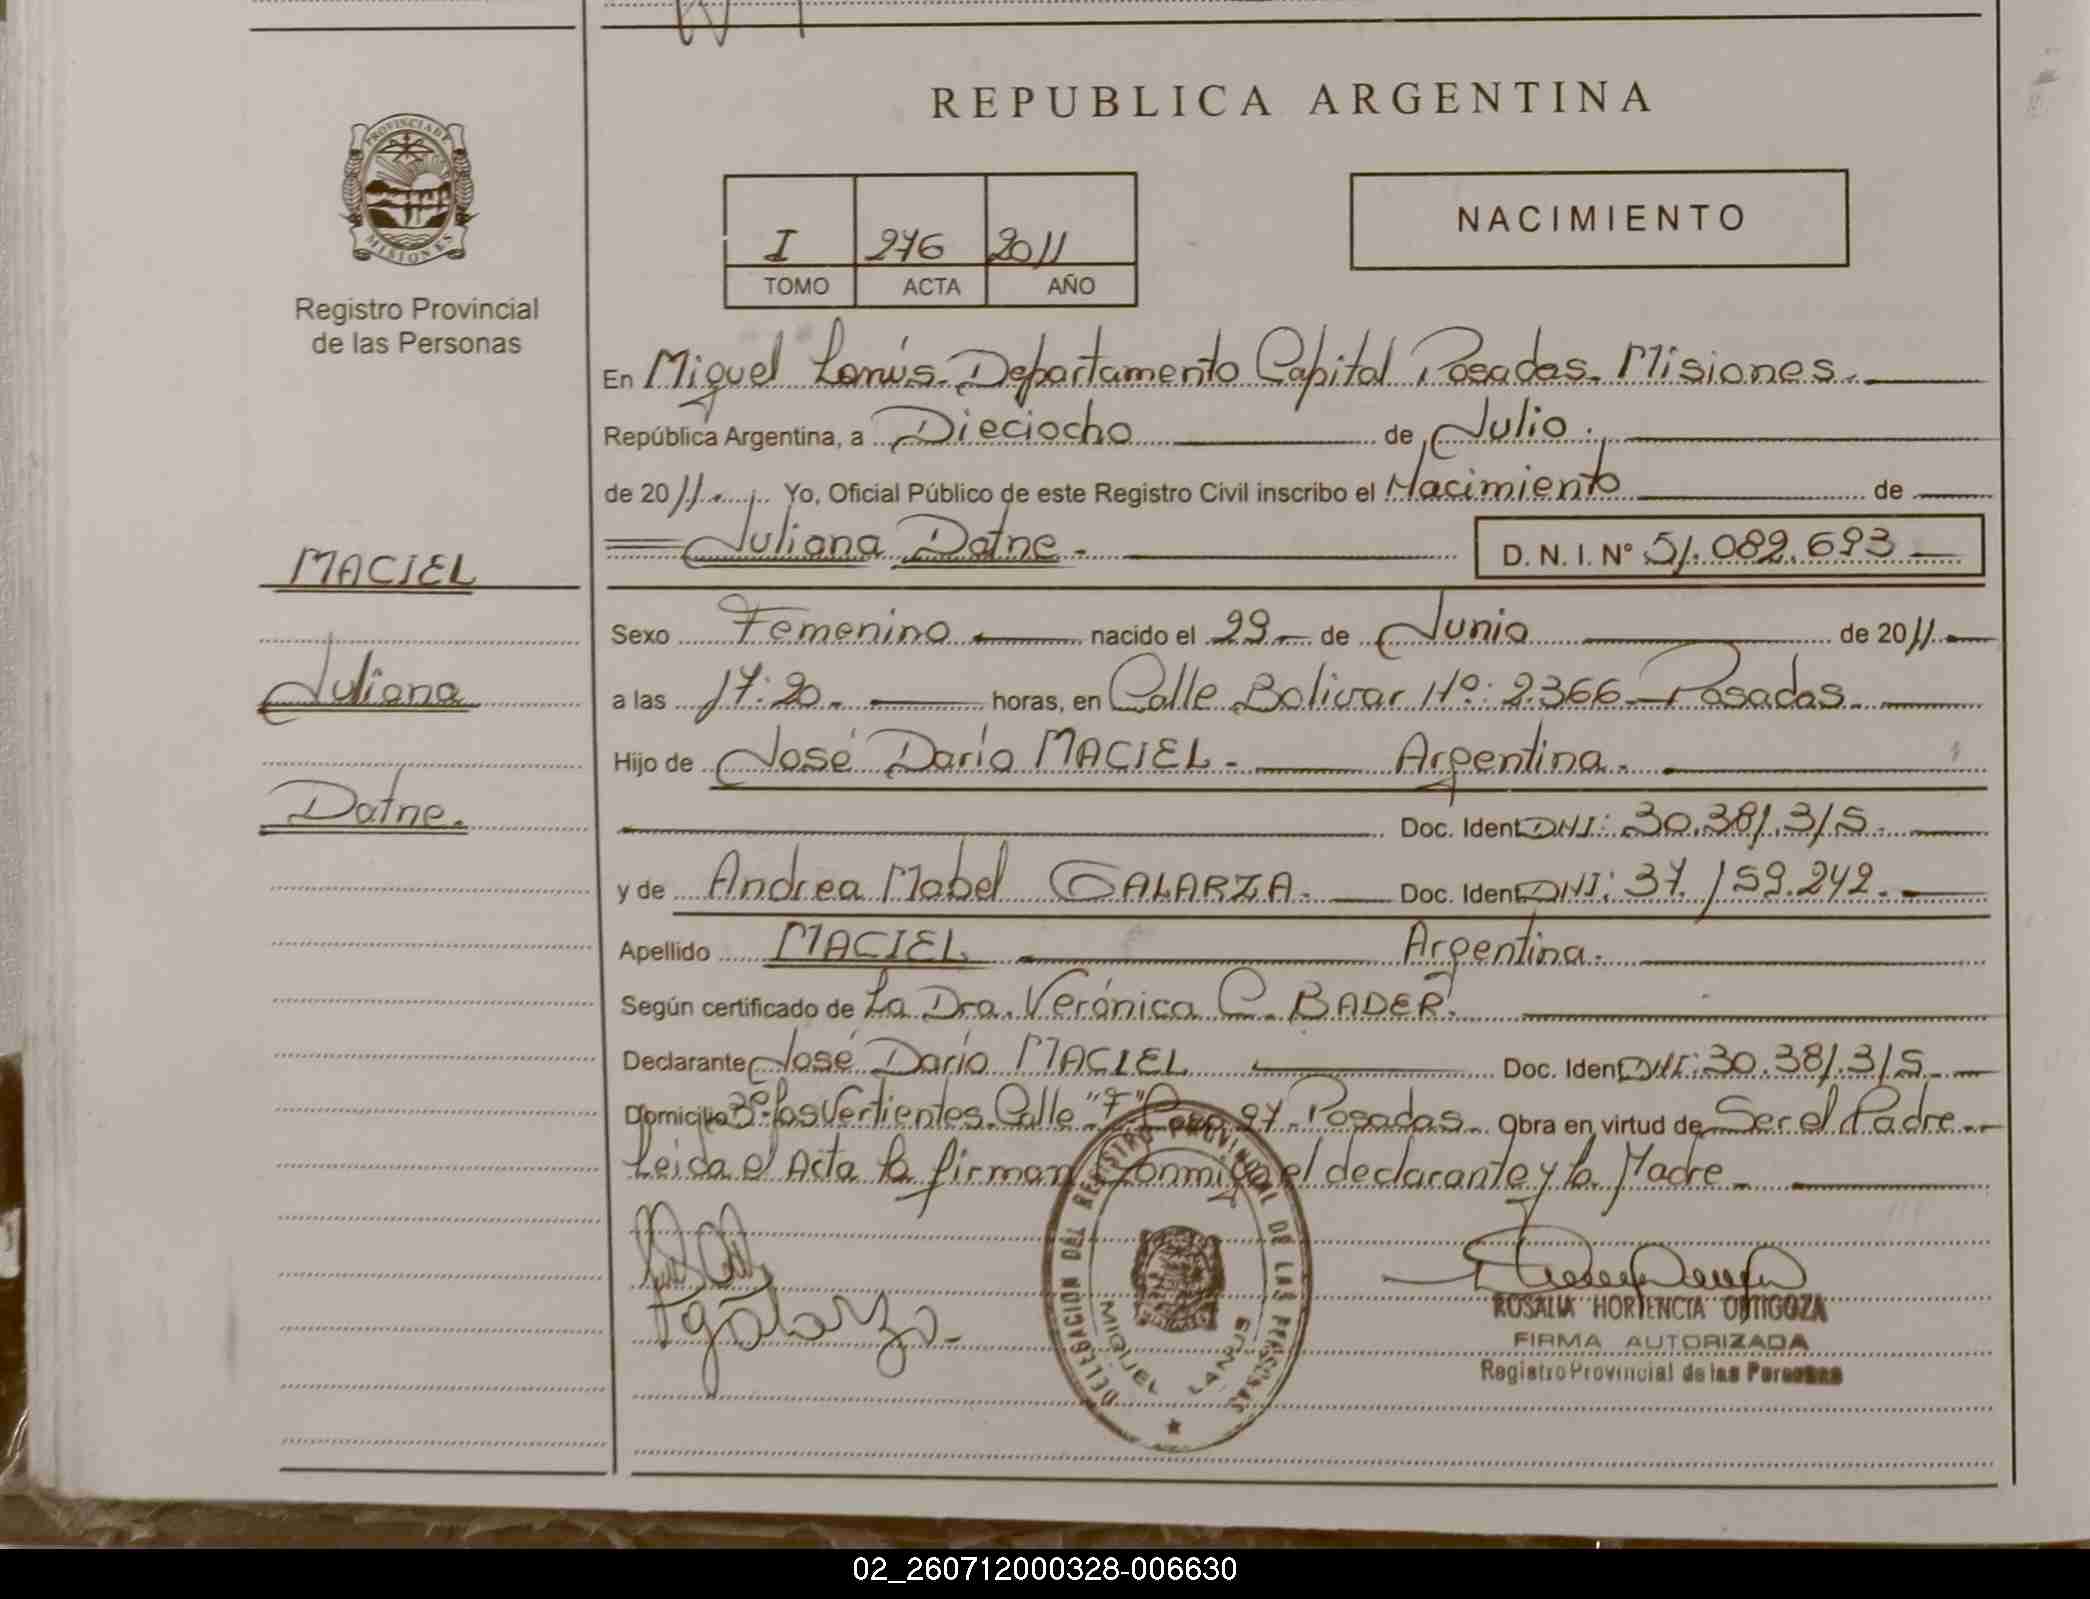 REPUBLICA ARGENTINA
PROVINCIA DE
MISIONES
Registro Provincial
de las Personas
I 276 2011
TOMO ACTA AÑO
NACIMIENTO
En Miguel Lanús. Departamento Capital Posadas. Misiones.
República Argentina, a Dieciocho de Julio.
de 2011. Yo, Oficial Público de este Registro Civil inscribo el Nacimiento de
Juliana Datne. D. N. I. N° 51.082.693
MACIEL
Juliana
Datne.
Sexo Femenino nacido el 29 de Junio de 2011.
a las 17:20. horas, en Calle Bolivar Nº: 2.366 - Posadas.
Hijo de José Darío MACIEL. Argentina.
Doc. Ident DNI: 30.381.315.
y de Andrea Mabel GALARZA. Doc. Ident DNI: 37.159.242.
Apellido MACIEL. Argentina.
Según certificado de La Dra. Verónica C. BADER.
Declarante José Darío MACIEL Doc. Ident DNI: 30.381.315.
Domicilio Bº. Las Vertientes. Calle "F" 27. Posadas. Obra en virtud de Ser el Padre.
Leída el Acta la firman conmigo el declarante y la Madre.
Galarza.
DELEGACION DEL REGISTRO PROVINCIAL DE LAS PERSONAS
MIGUEL LANUS
ROSALIA HORTENCIA ORTIGOZA
FIRMA AUTORIZADA
Registro Provincial de las Personas
02_260712000328-006630